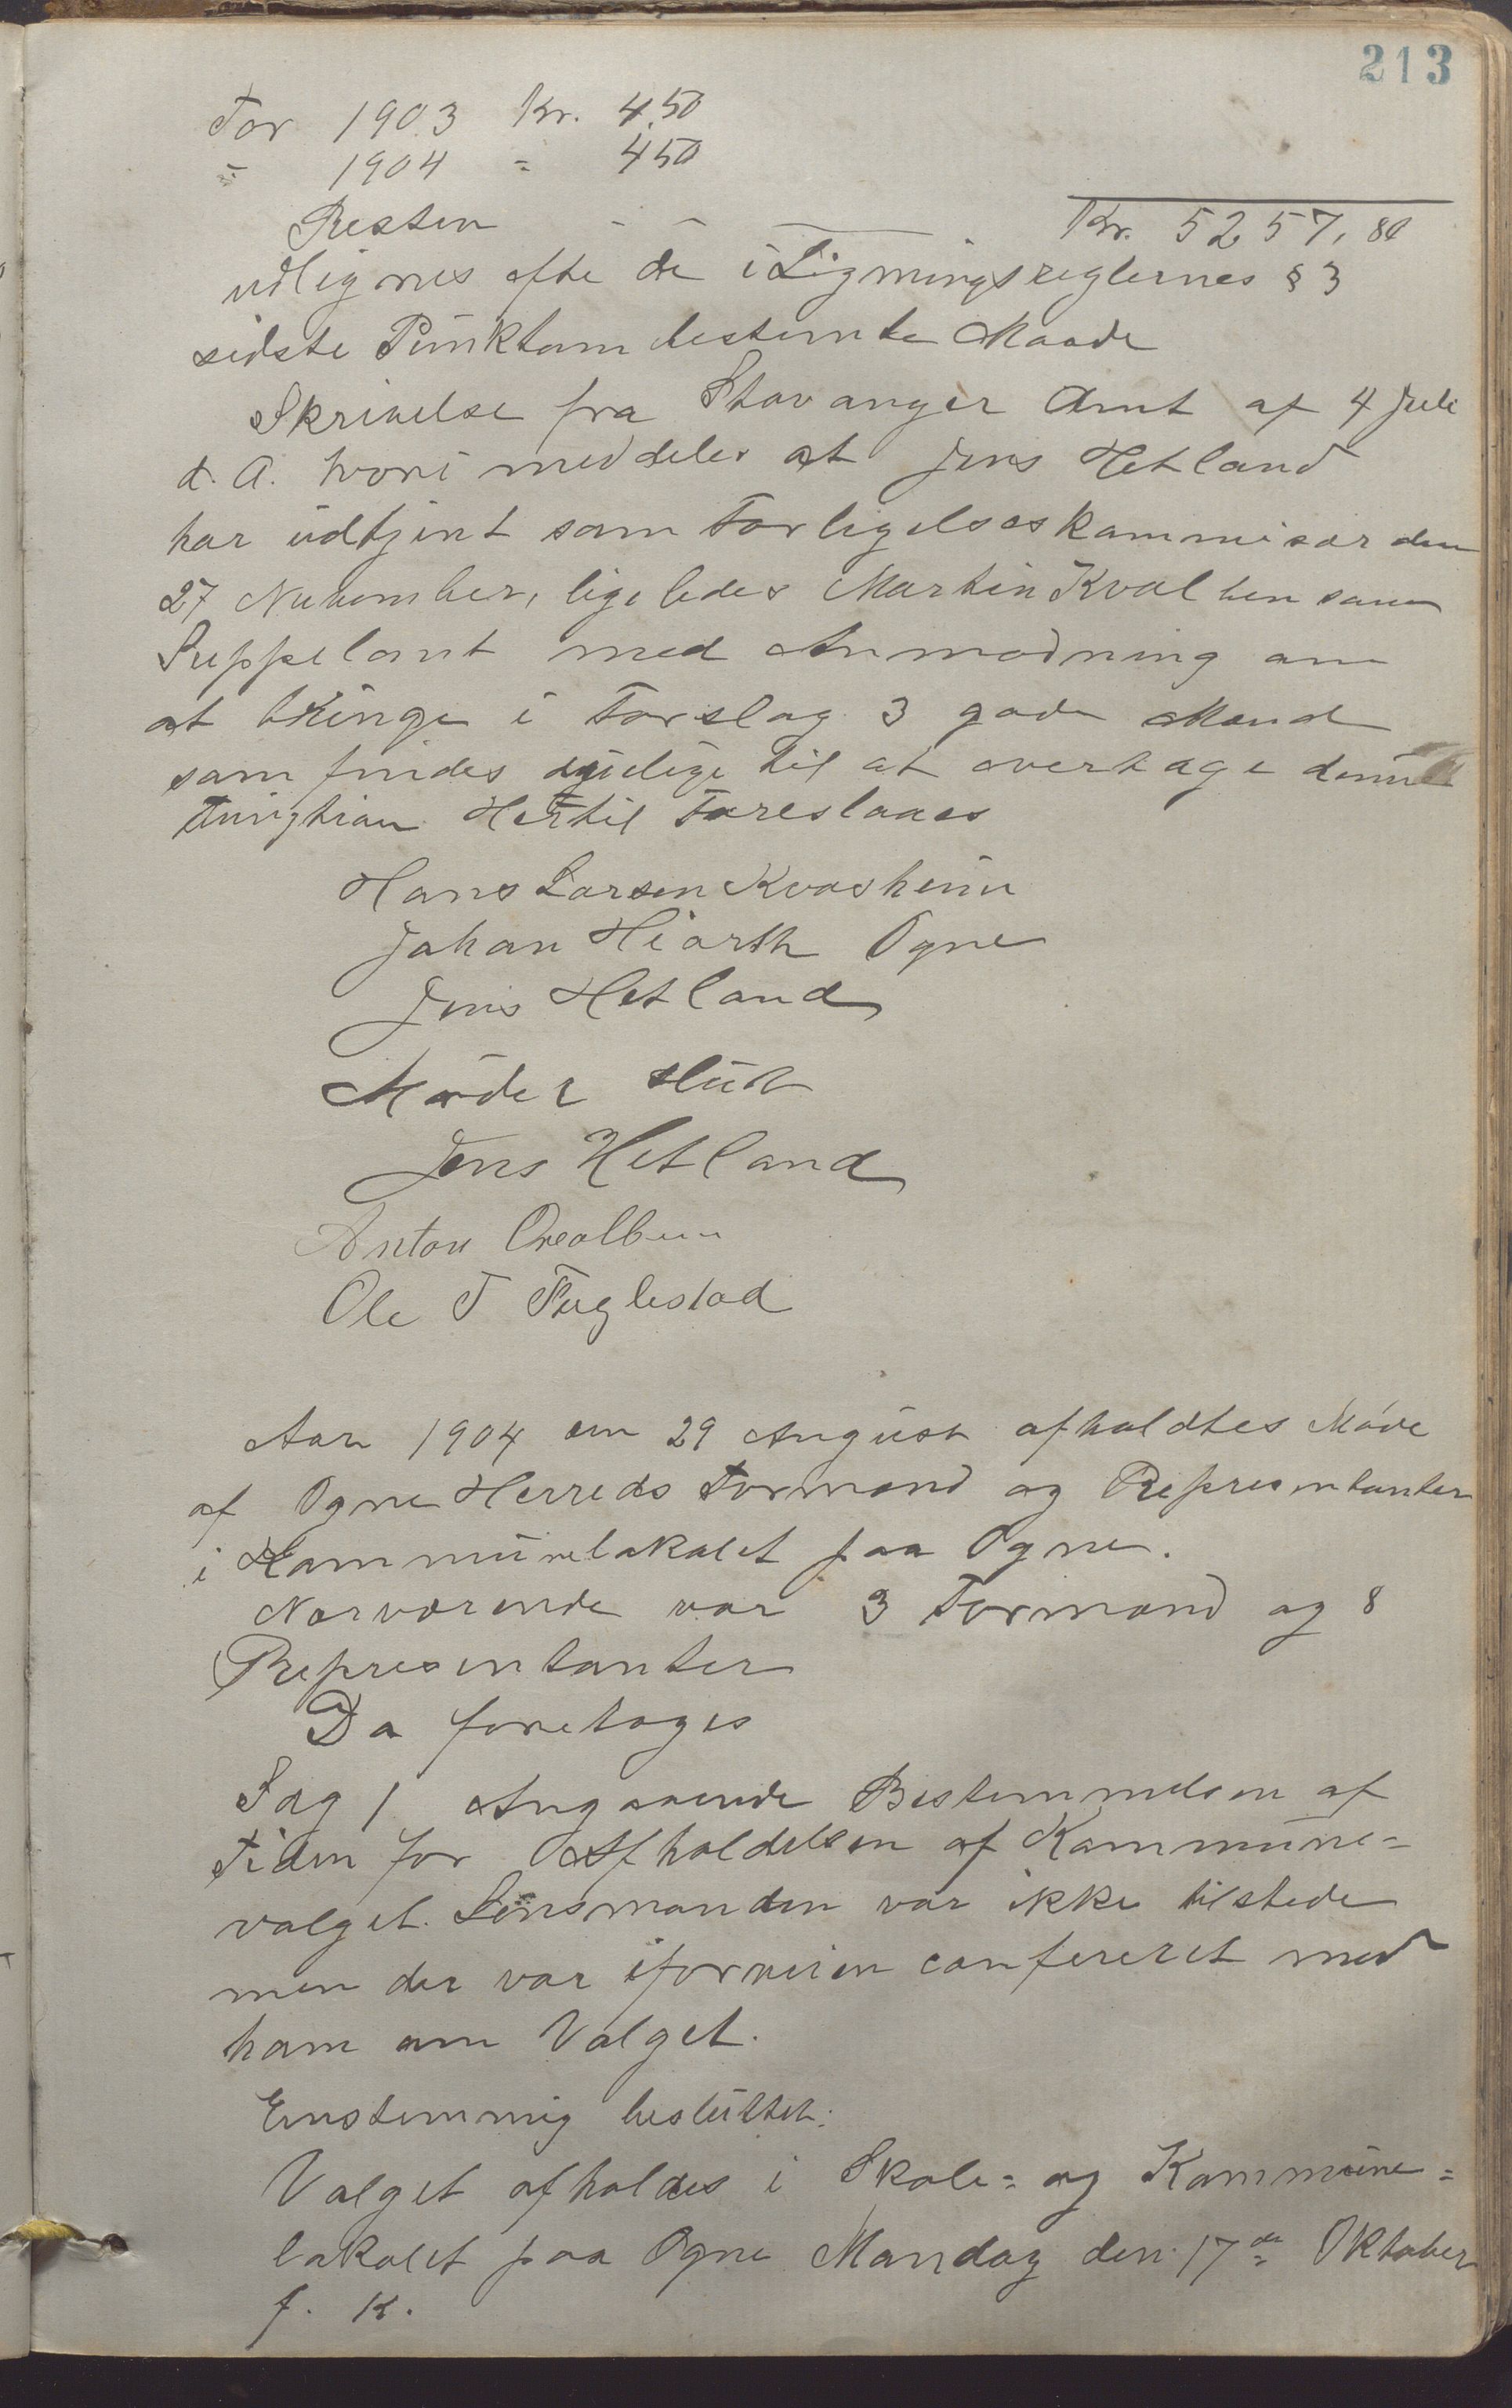 213
For 1903 Kr. 4,50
" 1904 " 4 50
Resten - - Kr. 5257,84
udlignes efte de i Ligningsreglernes § 3
sidste Punktum bestemte Maade
Skrivelse fra Stavanger Amt af 4 Juli
d. A. hvori meddeles at Jens Hetland
har udtjent som Forligelseskommisær den
27 November, ligeledes Martin Kvalben som
Suppelant med Anmodning om
at bringe i Forslag 3 gode Mænd
som findes dyelige til at overtage denne
Hertil Foreslaaes
Hans Larsen Kvasheim
Johan Hiorth Ogne
Jens Hetland
Mødet slut
Jens Hetland
Anton Qvalbein
Ole T Fuglestad
Aar 1904 en 29 August afholdtes Møde
af Ogne Herreds Formænd og Representanter
i Kommunelokalet paa Ogne.
Nærværende var 3 Formænd og 8
Representanter
Da foretages
Sag 1 Angaaende Bestemmelsen af
Tiden for Afholdelsen af Kommune=
valget. Lensmanden var ikke tilstede
men der var iforveien confereret med
ham om Valget.
Enstemmig besluttet:
Valget afholdes i Skole= og Kommune=
lokalet paa Ogne Mandag den 17de Oktober
f. K.